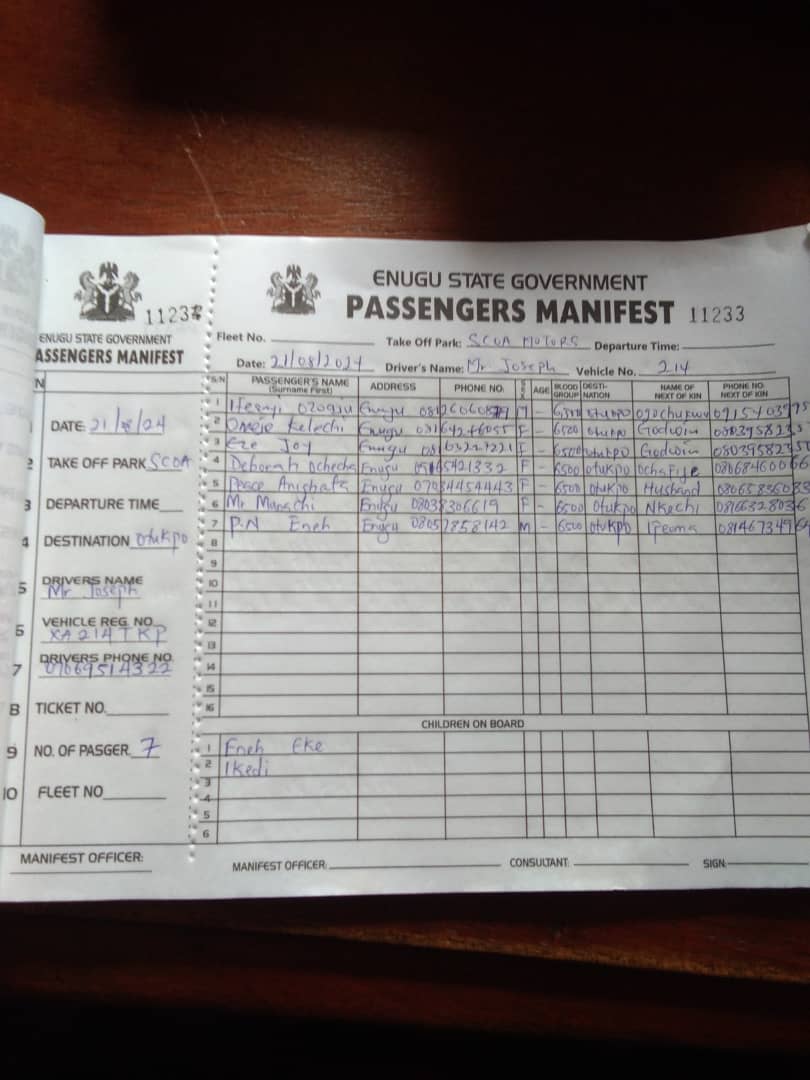 11233
ENUGU STATE GOVERNMENT
ASSENGERS MANIFEST
N
DATE: 21/8/24
2 TAKE OFF PARK SCOA
3 DEPARTURE TIME
4 DESTINATION Otukpo
5 DRIVERS NAME
Mr Joseph
6 VEHICLE REG. NO.
XA 214 TKP
7 DRIVERS PHONE NO.
07069514322
8 TICKET NO.
9 NO. OF PASGER. 7
10 FLEET NO
MANIFEST OFFICER:
ENUGU STATE GOVERNMENT
PASSENGERS MANIFEST 11233
Fleet No. Take Off Park: SCOA MOTORS Departure Time:
Date: 21/08/2024 Driver's Name: Mr Joseph Vehicle No. 214
S/N PASSENGER'S NAME (Surname First) ADDRESS PHONE NO. SEX AGE BLOOD GROUP DESTI-NATION NAME OF NEXT OF KIN PHONE NO. NEXT OF KIN
1 Ifeanyi Enugu M - 6500 otukpo
2 Omeje Kelechi Enugu F - 6500 otukpo Godwin
3 Eze Joy Enugu F - 6500 otukpo Godwin
4 Deborah Ochecha Enugu F - 6500 otukpo
5 Peace Enugu 07034454443 F - 6500 otukpo Husband
6 Mr Manachi Enugu 08038306619 F - 6500 otukpo Nkechi
7 P.N Eneh Enugu 08057858142 M - 6500 otukpo Ifeoma
8
9
10
11
12
13
14
15
16
CHILDREN ON BOARD
1 Eneh Eke
2 Ikedi
3
4
5
6
MANIFEST OFFICER: CONSULTANT: SIGN: